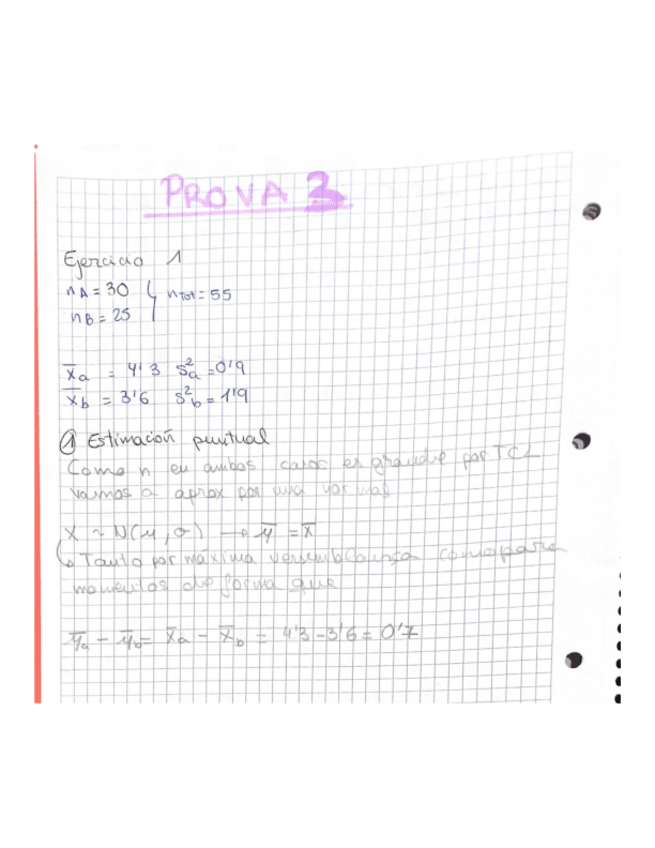 PROVA 2
Ejercicio 1
nA = 30
nTot = 55
nB = 25
x̄a = 4'3 S²a = 0'9
x̄b = 3'6 S²b = 1'9
① Estimación puntual
Como n en ambos casos es grande por TCL
vamos a aprox por una normal
X ~ N(μ, σ) → μ̄ = x̄
↳ Tanto por máxima verosimilitud como para
momentos de forma que
μ̄a - μ̄b = x̄a - x̄b = 4'3 - 3'6 = 0'7